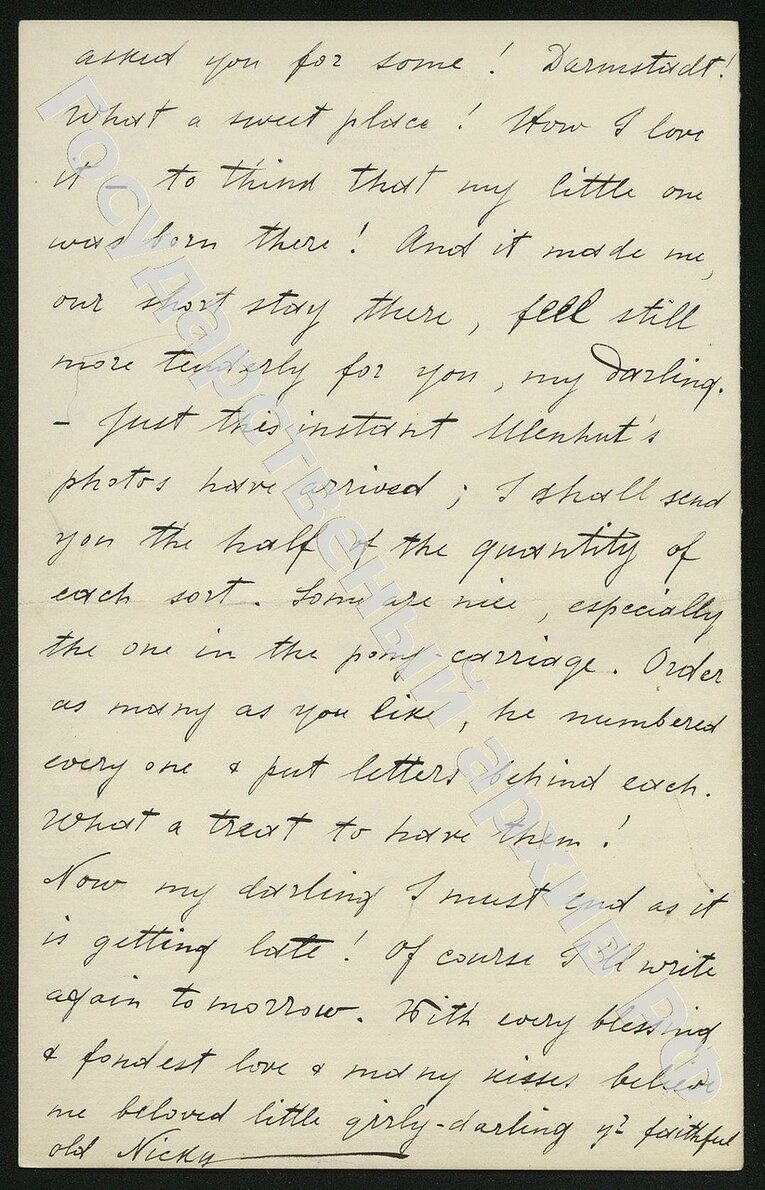 asked you for some! Darmstadt!
What a sweet place! How I love
it – to think that my little one
was born there! And it made me,
our short stay there, feel still
more tenderly for you, my darling.
– Just this instant Ulenhut's
photos have arrived; I shall send
you the half of the quantity of
each sort. Some are nice, especially
the one in the pony-carriage. Order
as many as you like, he numbered
every one & put letters behind each.
What a treat to have them!
Now my darling I must end as it
is getting late! Of course I'll write
again tomorrow. With every blessing
& fondest love & many kisses believe
me beloved little girly-darling yr faithful
old Nicky
Государственный архив РФ